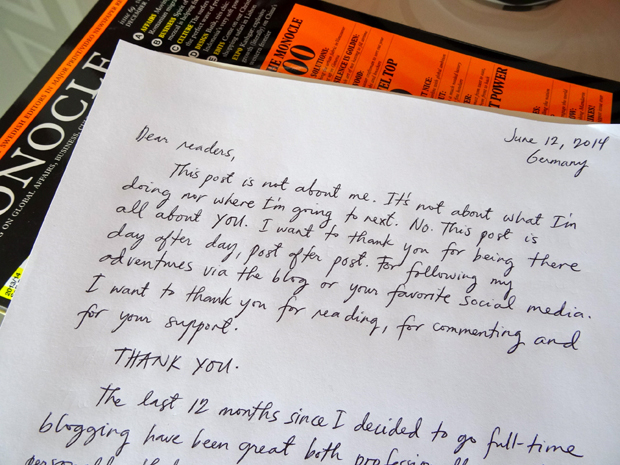 SWEDISH EDITORS IN MAJOR
ONOCLE
ON GLOBAL AFFAIRS, BUSINESS,
A AFFAIRS
B BUSINESS
C CULTURE
D DESIGN
E EDITS
MONOCLE
SOLUTIONS:
SILENCE IS GOLDEN:
TOP
POWER
June 12, 2014
Germany
Dear readers,
This post is not about me. It's not about what I'm
doing nor where I'm going to next. No. This post is
all about YOU. I want to thank you for being there
day after day, post after post. For following my
adventures via the blog or your favorite social media.
I want to thank you for reading, for commenting and
for your support.
THANK YOU.
The last 12 months since I decided to go full-time
blogging have been great both